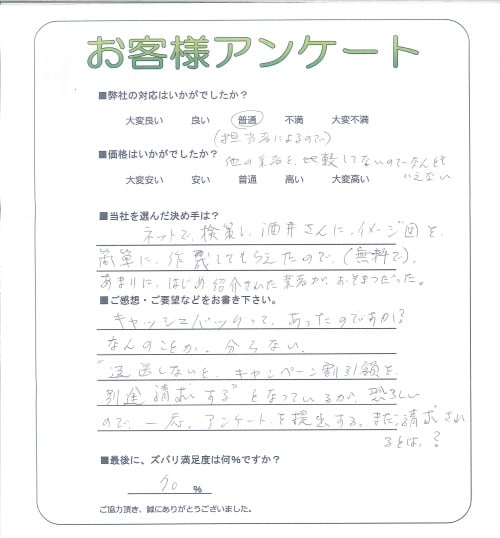 お客様アンケート
■弊社の対応はいかがでしたか？
大変良い 良い 普通 不満 大変不満
(担当者によるので)
■価格はいかがでしたか？
他の業者と、比較してないので、なんとも
いえない
大変安い 安い 普通 高い 大変高い
■当社を選んだ決め手は？
ネットで、検索し、酒井さんに、イメージ図を、
簡単に、作成してもらえたので、(無料で)。
あまりに、はじめ紹介された業者が、おそまつだった。
■ご感想・ご要望などをお書き下さい。
キャッシュバックって、あったのですか？
なんのことか、分らない、
"返送しないと、キャンペーン割引額を、
別途請求する"となっているが、恐ろしい
ので、一応、アンケートを提出する。まだ請求され
るとは。？
■最後に、ズバリ満足度は何%ですか？
%
ご協力頂き、誠にありがとうございました。